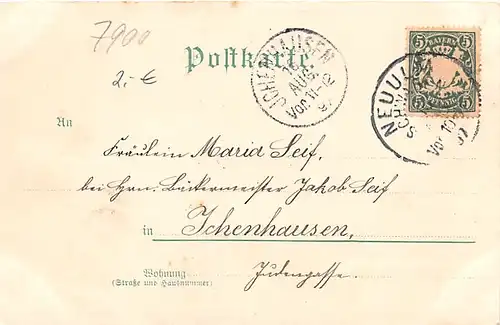 7900
Postkarte.
2,- €
ICHENHAUSEN
AUG.
Vor. 11-12
97
BAYERN
5 5
5 PFENNIG 5
NEUULM
Vor. 10
97
An
Fräulein Maria Seif,
bei Hrn. Bäckermeister Jakob Seif
in Ichenhausen,
Wohnung
(Straße und Hausnummer)
Judengasse.